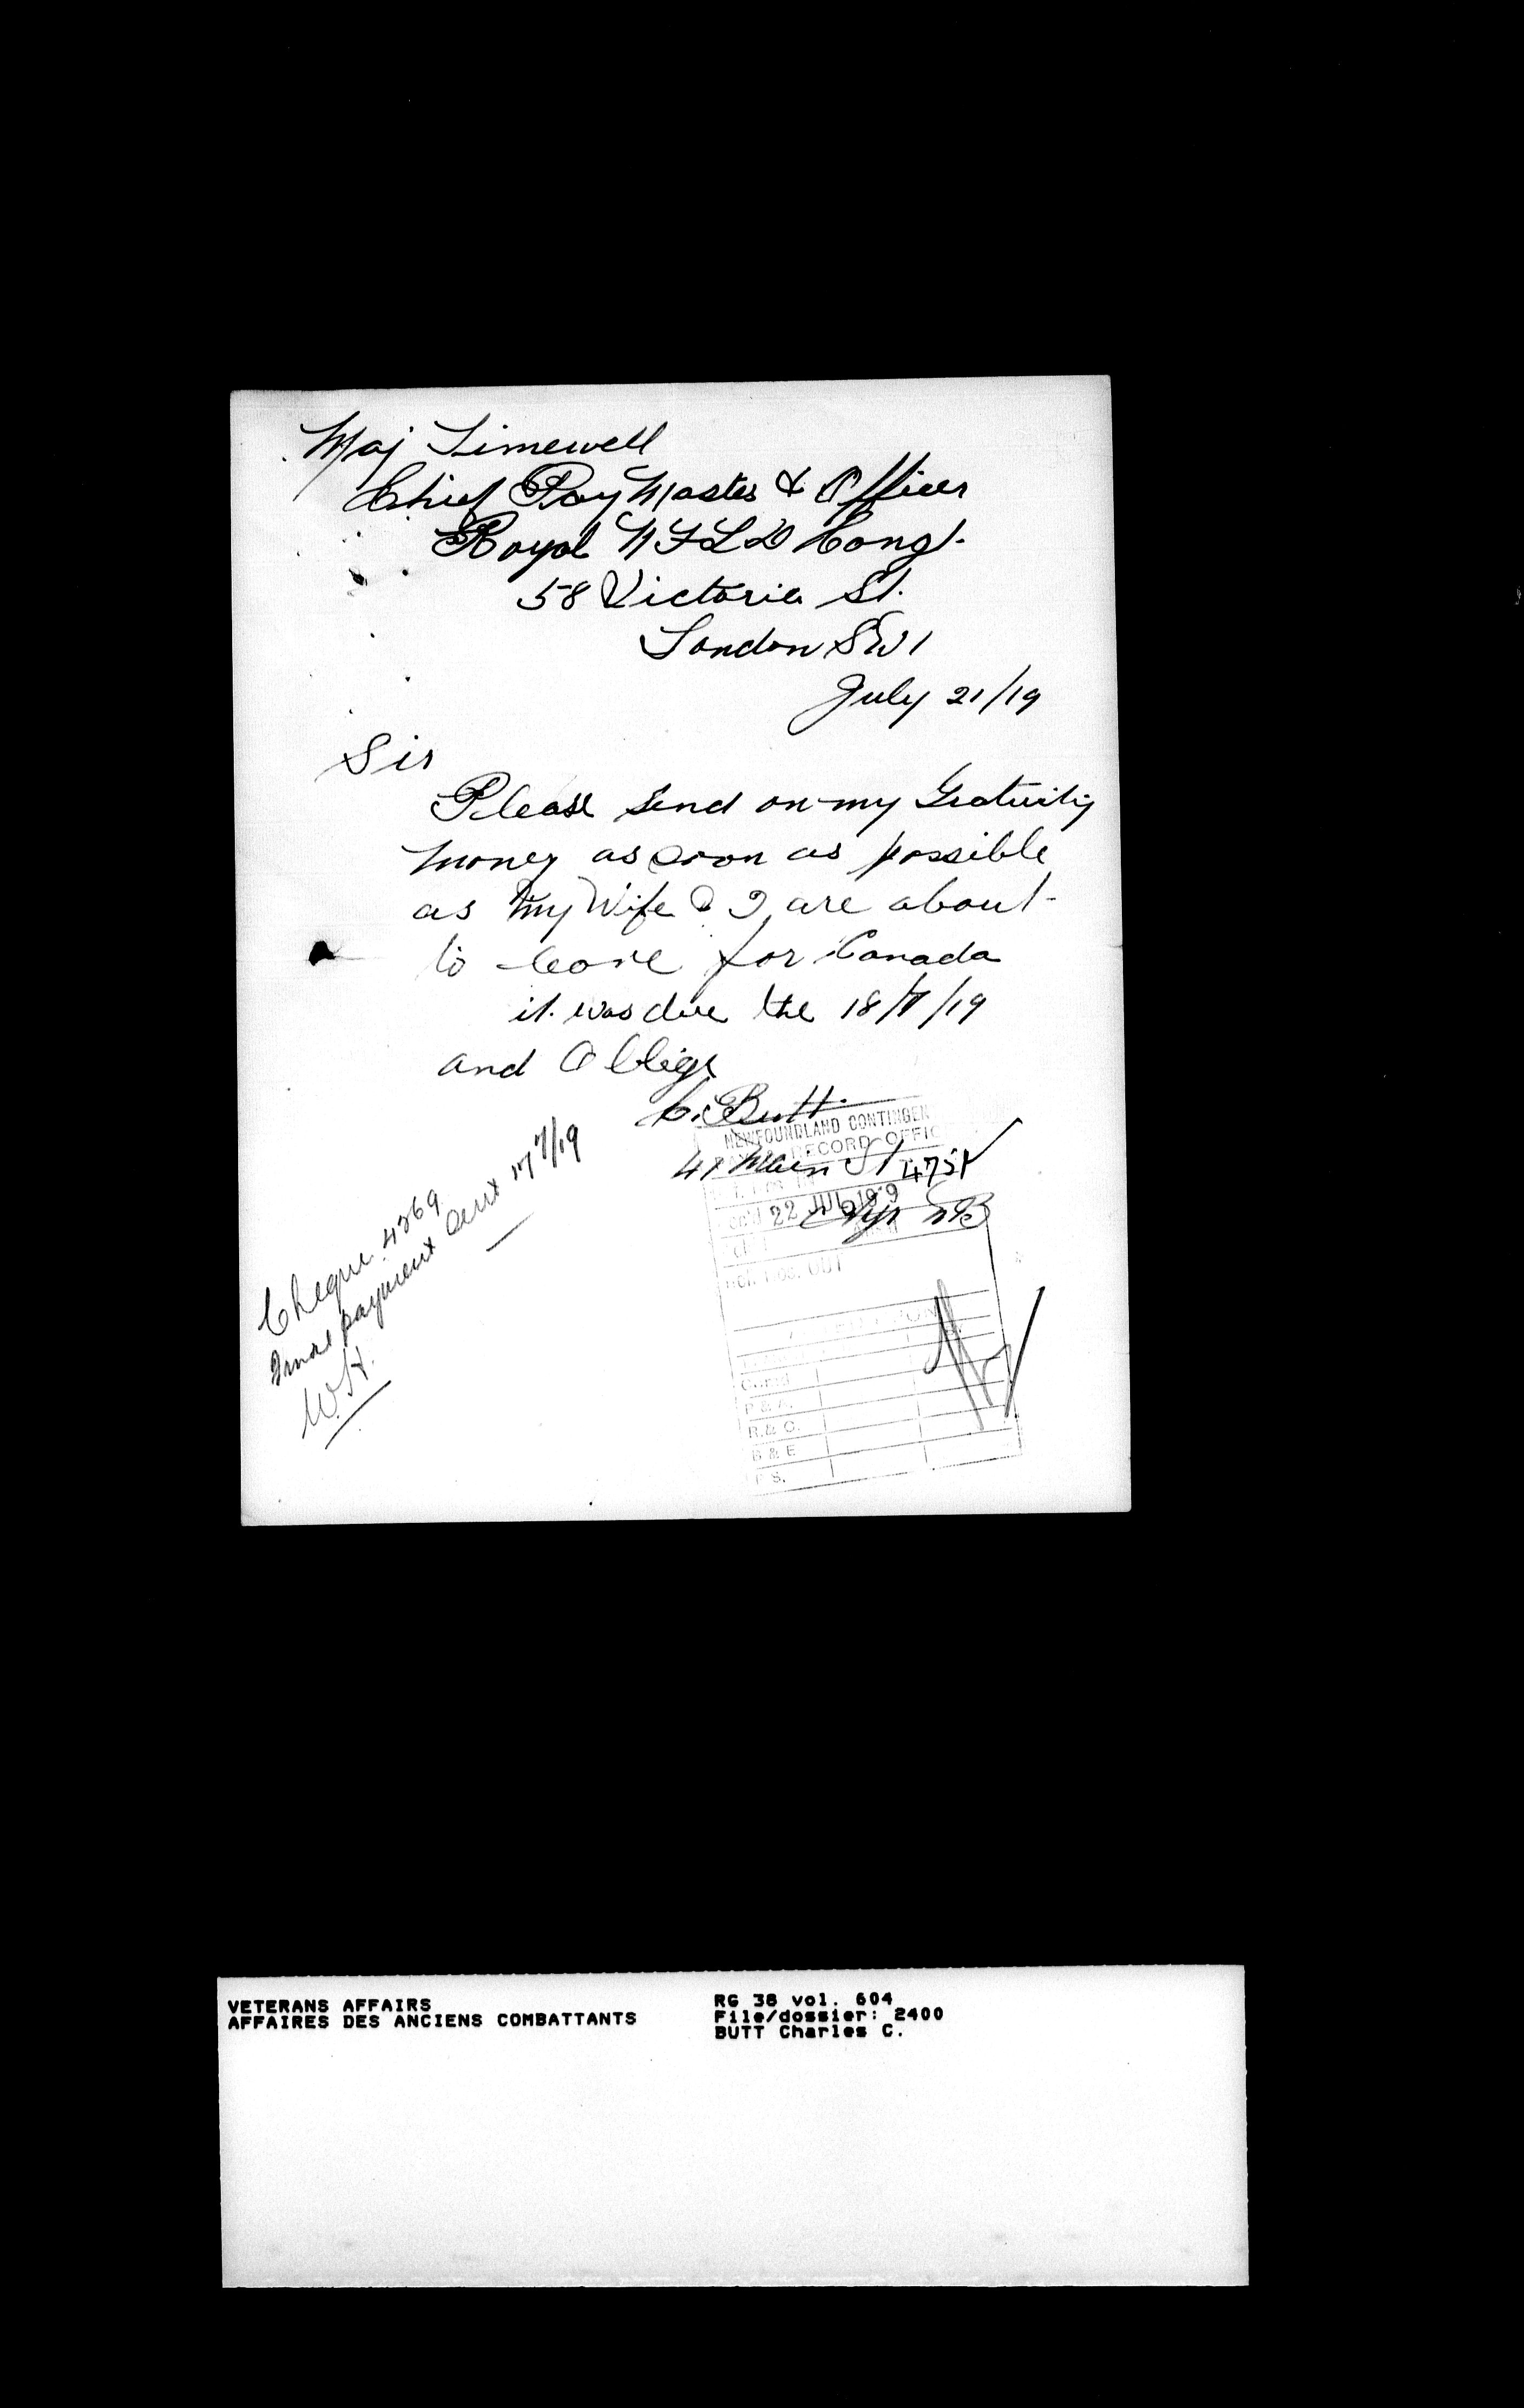 Maj Timewell
Chief Pay Master & Officer
Royal NFLD Congt.
58 Victoria St.
London SW1
July 21/19
Sir
Please send on my Gratuity
money as soon as possible
as my Wife & I are about
to leave for Canada
it was due the 18/7/19
and Oblige
C. Butt
NEWFOUNDLAND CONTINGEN
RECORD OFFIC
41 Main St
22 JUL 1919
Ayr NB
OUT
R.& C.
B & E
Cheque 4369
Final payment sent 17 7/19
W.H.
VETERANS AFFAIRS
AFFAIRES DES ANCIENS COMBATTANTS
RG 38 vol. 604
File/dossier: 2400
BUTT Charles C.